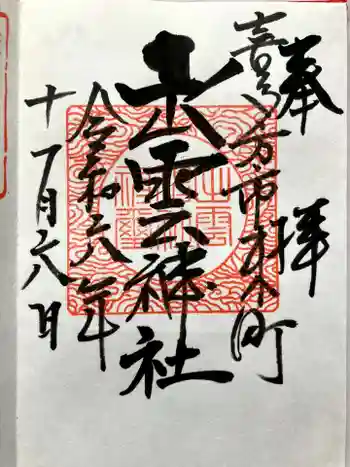 奉拝
喜多方市本町
出雲神社
令和六年
十一月六日